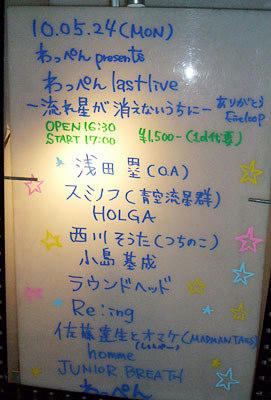 10.05.24(MON)
わっぺん presents
わっぺん last live
〜流れ星が消えないうちに〜 ありがとう
Fireloop
OPEN 16:30
START 17:00
¥1,500-(1d代要)
浅田 塁(O.A)
スミノフ(青空流星群)
HOLGA
西川そうた(つちのこ)
小島 基成
ラウンドヘッド
Re:ing
佐藤達生とオマケ(MADMANTAKS)
homme
JUNIOR BREATH
わっぺん